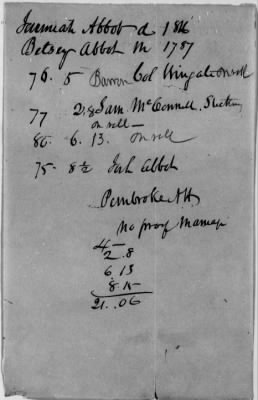 Jeremiah Abbot d 18
Betsey Abbot m 1787
76. 5 Barron Col Wingate on roll
77 2.8 Sam McConnell,
on roll —
80. 6. 13. on roll
75 - 8½ Abbot
Pembroke NH
no proof Marriage
4 —
2.8
6 13
8 15
21..06